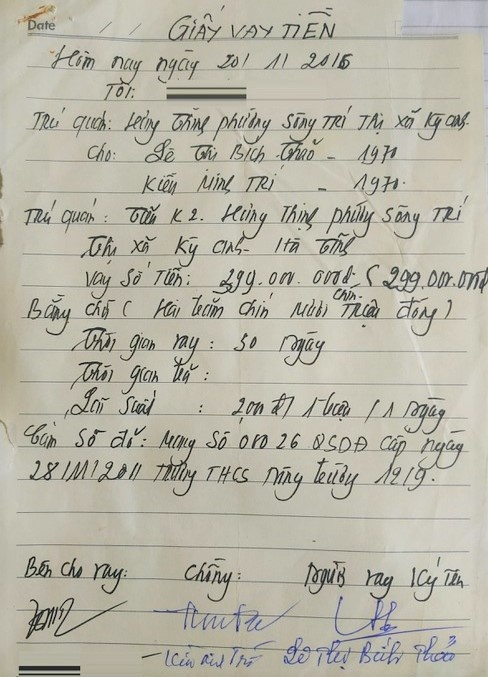 Date
GIẤY VAY TIỀN
Hôm nay ngày 20/11/2016
Tôi:
Trú quán: Hưng Thịnh phường Sông Trí Thị xã Kỳ anh
Cho: Lê Thị Bích Thảo - 1970
Kiều Minh Trí - 1970.
Trú quán: Tiểu K2. Hưng Thịnh phường Sông Trí
thị xã Kỳ anh - Hà Tĩnh
vay Số Tiền: 299.000.000đ (299.000.000đ
Bằng chữ (Hai trăm chín Mươi chín Triệu đồng)
Thời gian vay: 30 ngày
Thời gian trả:
Lãi suất : 2000đ/1 triệu/1 ngày
Cầm Sổ đỏ: Mang Số QSDĐ cấp ngày
28/11/2011 Trường THCS nông trường 12/9.
Bên cho vay: Chồng: Người vay Ký tên
Lê Thị Bích Thảo